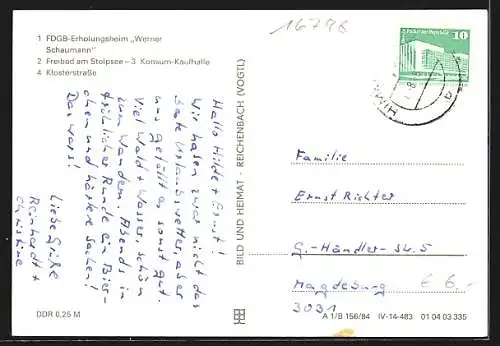 1 FDGB-Erholungsheim „Werner
Schaumann"
2 Freibad am Stolpsee – 3 Konsum-Kaufhalle
4 Klosterstraße
16796
10
HIMM
Hallo Hilde + Ernst!
Wir haben zwar nicht das
beste Urlaubswetter, aber
uns gefällt es sonst gut.
Viel Wald + Wasser, schön
zum Wandern. Abends in
fröhlicher Runde ein Bier-
chen und härtere Sachen!
Das wars!
Liebe Grüße
Reinhardt +
Christine
BILD UND HEIMAT · REICHENBACH (VOGTL)
Familie
Ernst Richter
G.-Händler-Str. 5
Magdeburg
3031
€ 6.-
DDR 0,25 M
A 1/B 156/84 IV-14-483 01 04 03 335